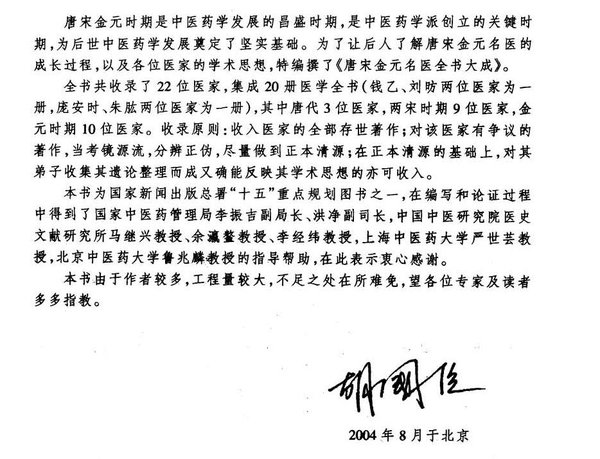 唐宋金元时期是中医药学发展的昌盛时期,是中医药学派创立的关键时
期,为后世中医药学发展奠定了坚实基础。为了让后人了解唐宋金元名医的
成长过程,以及各位医家的学术思想,特编撰了《唐宋金元名医全书大成》。
全书共收录了22位医家,集成20册医学全书(钱乙、刘昉两位医家为一
册,庞安时、朱肱两位医家为一册),其中唐代3位医家,两宋时期9位医家,金
元时期10位医家。收录原则:收入医家的全部存世著作;对该医家有争议的
著作,当考镜源流,分辨正伪,尽量做到正本清源;在正本清源的基础上,对其
弟子收集其遗论整理而成又确能反映其学术思想的亦可收入。
本书为国家新闻出版总署“十五”重点规划图书之一,在编写和论证过程
中得到了国家中医药管理局李振吉副局长、洪净副司长,中国中医研究院医史
文献研究所马继兴教授、余瀛鳌教授、李经纬教授,上海中医药大学严世芸教
授,北京中医药大学鲁兆麟教授的指导帮助,在此表示衷心感谢。
本书由于作者较多,工程量较大,不足之处在所难免,望各位专家及读者
多多指教。
胡国臣
2004年8月于北京